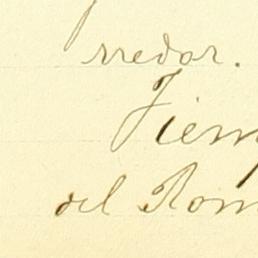 rredor.
Tiem
del Rom